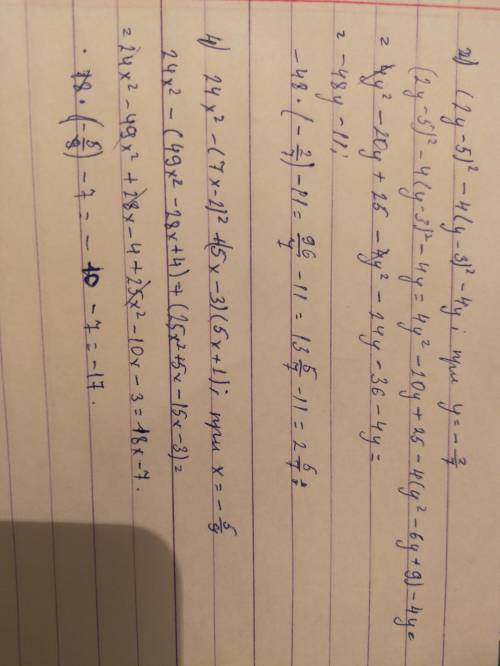 2) (2y-5)² - 4(y-3)² - 4y; при y = -2/7
(2y-5)² - 4(y-3)² - 4y = 4y² - 20y + 25 - 4(y² - 6y + 9) - 4y =
= 4y² - 20y + 25 - 4y² - 24y - 36 - 4y =
= -48y - 11;
-48 · (-2/7) - 11 = 96/7 - 11 = 13 5/7 - 11 = 2 6/7;
4) 24x² - (7x-2)² + (5x-3)(5x+1); при x = -5/9
24x² - (49x² - 28x + 4) + (25x² + 5x - 15x - 3) =
= 24x² - 49x² + 28x - 4 + 25x² - 10x - 3 = 18x - 7.
· 18 · (-5/9) - 7 = -10 - 7 = -17.